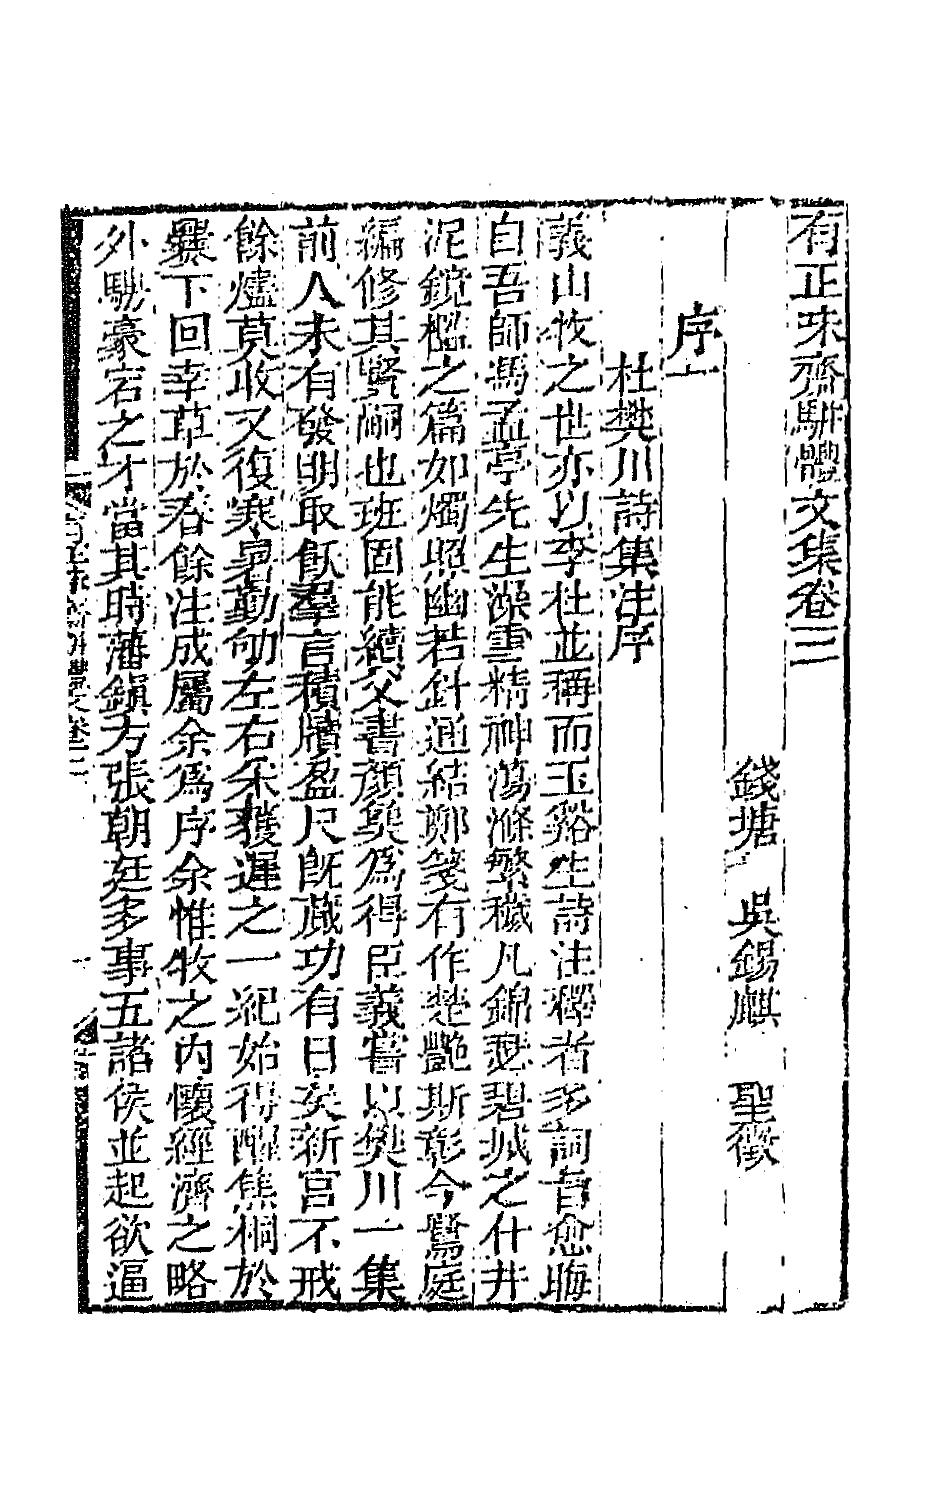 有正味齋駢體文集卷三
錢塘　吳錫麒　聖徵
序一
杜樊川詩集注序
義山牧之世亦以李杜並稱而玉谿生詩注釋者多詞旨愈晦
自吾師馮孟亭先生澡雪精神蕩滌繁穢凡錦瑟碧城之什井
泥鏡檻之篇如燭照幽若針通結鄭箋有作楚艷斯彰今鷺庭
編修其賢嗣也班固能續父書顏奧為得臣義嘗以樊川一集
前人未有發明取飫羣言積牘盈尺既蕆功有日矣新宫不戒
餘燼莫收又復寒暴勤劬左右采獲遲之一紀始得醒焦桐於
爨下回幸草於春餘注成屬余為序余惟牧之内懷經濟之略
外騁豪宕之才當其時藩鎭方張朝廷多事五諸侯並起欲逼
有正味齋駢體文卷三
一